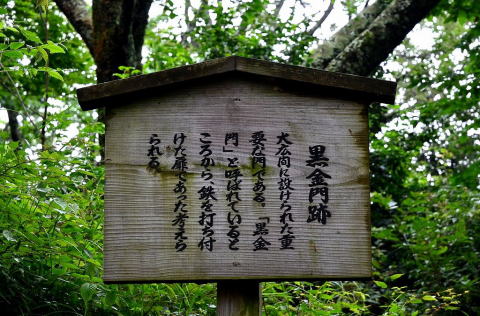 黒金門跡
大谷筒に設けられた重
要な門である。「黒金
門」と呼ばれていると
ころから、鉄を打ち付
けた扉であった考えら
れる。